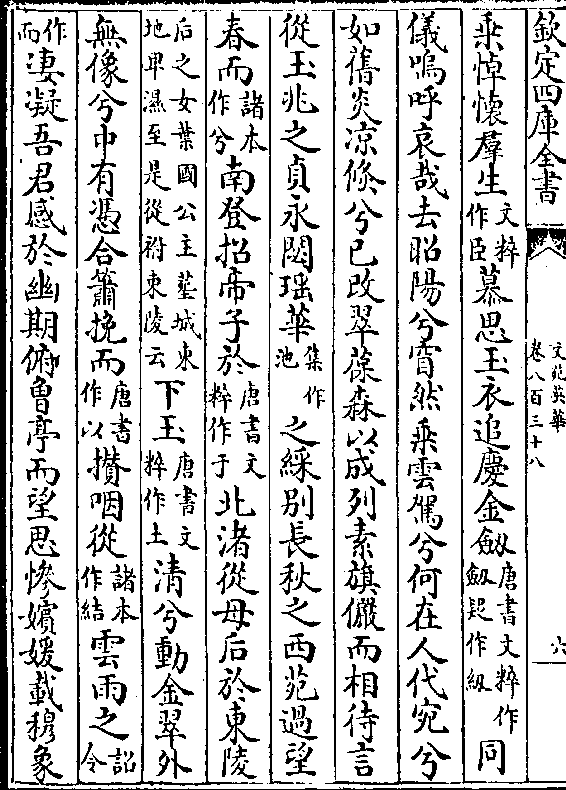 欽定四庫全書
文苑英華
卷八百三十八
六
乗悼懷羣生文粹作臣慕思玉衣追慶金劔唐書文粹作劔疑作級同
儀嗚呼哀哉去昭陽兮窅然乗雲駕兮何在人代宛兮
如舊炎凉倐兮已改翠葆森以成列素旗儼而相待言
從玉兆之貞永閟瑶華集作池之綵别長秋之西苑過望
春而諸本作兮南登招帝子於唐書文粹作于北渚從母后於東陵
后之女葉國公主塟城東地卑濕至是從祔東陵云下玉唐書文粹作土清兮動金翠外
無像兮中有憑合簫挽而唐書作以攅咽從諸本作結雲雨之詔令
作而凄凝吾君感於幽期俯魯亭而望思慘嬪媛載穆象